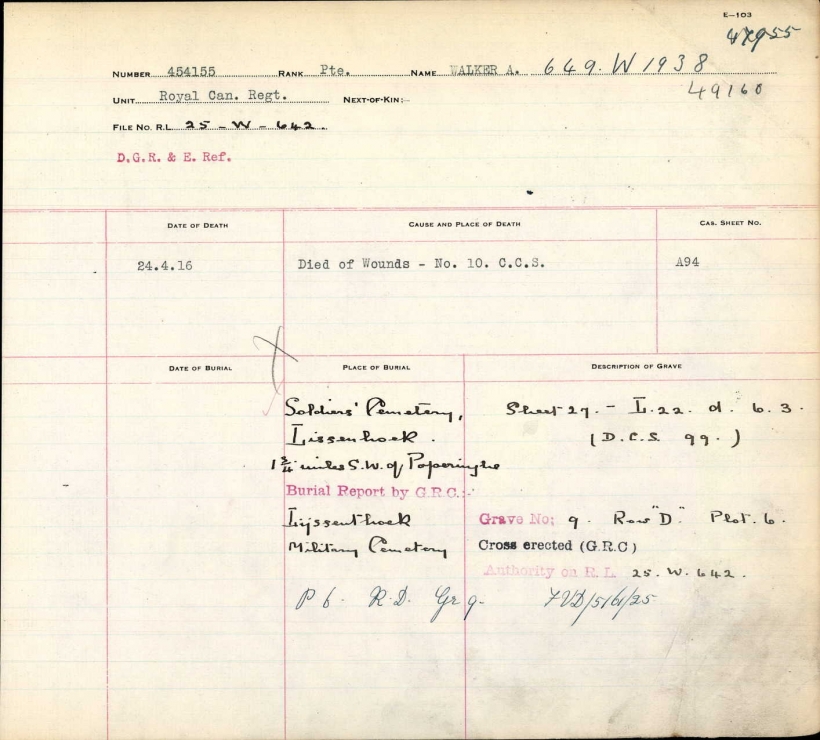 E—103
NUMBER 454155 RANK Pte. NAME WALKER A. 649. W 1938
UNIT Royal Can. Regt. NEXT-OF-KIN:- 49160
FILE NO. R.L. 25 - W - 642.
D.G.R. & E. Ref.
DATE OF DEATH CAUSE AND PLACE OF DEATH CAS. SHEET NO.
24.4.16 Died of Wounds - No. 10. C.C.S. A94
DATE OF BURIAL PLACE OF BURIAL DESCRIPTION OF GRAVE
Soldiers' Cemetery, Sheet 27. - L. 22. d. 6. 3.
Lissenhoek. (D.C.S. 99.)
1 3/4 miles S.W. of Poperinghe
Burial Report by G.R.C.:-
Lijssenthoek Grave No: 9. Row "D". Plot. 6.
Military Cemetery Cross erected (G.R.C)
Authority on R.L. 25. W. 642.
P 6. R.D. Gr 9.